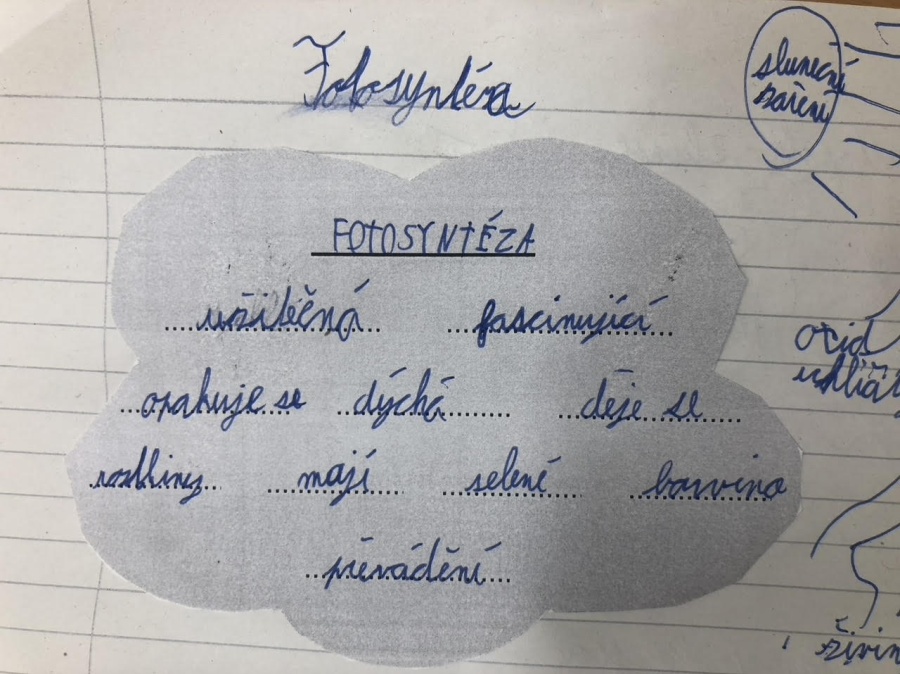 Fotosyntéza
sluneční
záření
FOTOSYNTÉZA
užitěčná fascinující
opakuje se dýchá děje se
rostliny mají zelené barvivo
převádění
oxid
uhlič
živin